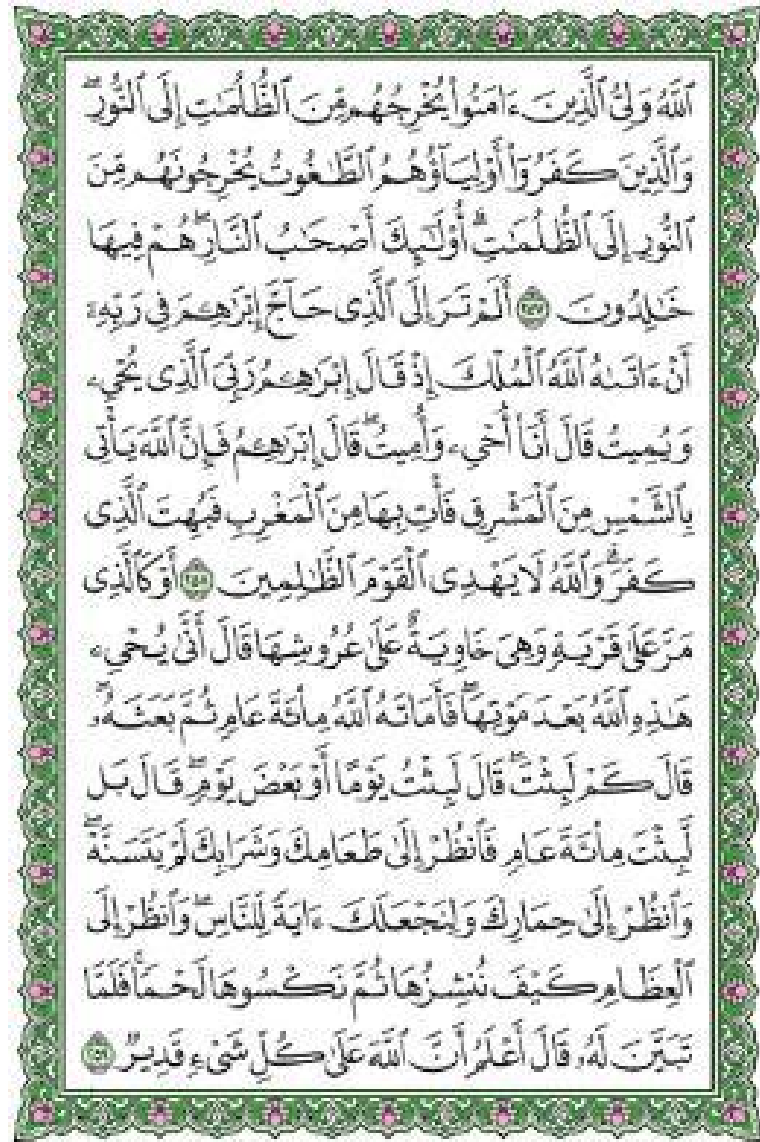 ٱللَّهُ وَلِىُّ ٱلَّذِينَ ءَامَنُوا۟ يُخْرِجُهُم مِّنَ ٱلظُّلُمَـٰتِ إِلَى ٱلنُّورِ ۖ
وَٱلَّذِينَ كَفَرُوٓا۟ أَوْلِيَآؤُهُمُ ٱلطَّـٰغُوتُ يُخْرِجُونَهُم مِّنَ
ٱلنُّورِ إِلَى ٱلظُّلُمَـٰتِ ۗ أُو۟لَـٰٓئِكَ أَصْحَـٰبُ ٱلنَّارِ ۖ هُمْ فِيهَا
خَـٰلِدُونَ ٢٥٧ أَلَمْ تَرَ إِلَى ٱلَّذِى حَآجَّ إِبْرَٰهِـۧمَ فِى رَبِّهِۦٓ
أَنْ ءَاتَىٰهُ ٱللَّهُ ٱلْمُلْكَ إِذْ قَالَ إِبْرَٰهِـۧمُ رَبِّىَ ٱلَّذِى يُحْىِۦ
وَيُمِيتُ قَالَ أَنَا۠ أُحْىِۦ وَأُمِيتُ ۖ قَالَ إِبْرَٰهِـۧمُ فَإِنَّ ٱللَّهَ يَأْتِى
بِٱلشَّمْسِ مِنَ ٱلْمَشْرِقِ فَأْتِ بِهَا مِنَ ٱلْمَغْرِبِ فَبُهِتَ ٱلَّذِى
كَفَرَ ۗ وَٱللَّهُ لَا يَهْدِى ٱلْقَوْمَ ٱلظَّـٰلِمِينَ ٢٥٨ أَوْ كَٱلَّذِى
مَرَّ عَلَىٰ قَرْيَةٍ وَهِىَ خَاوِيَةٌ عَلَىٰ عُرُوشِهَا قَالَ أَنَّىٰ يُحْىِۦ
هَـٰذِهِ ٱللَّهُ بَعْدَ مَوْتِهَا ۖ فَأَمَاتَهُ ٱللَّهُ مِا۟ئَةَ عَامٍ ثُمَّ بَعَثَهُۥ ۖ
قَالَ كَمْ لَبِثْتَ ۖ قَالَ لَبِثْتُ يَوْمًا أَوْ بَعْضَ يَوْمٍ ۖ قَالَ بَل
لَّبِثْتَ مِا۟ئَةَ عَامٍ فَٱنظُرْ إِلَىٰ طَعَامِكَ وَشَرَابِكَ لَمْ يَتَسَنَّهْ ۖ
وَٱنظُرْ إِلَىٰ حِمَارِكَ وَلِنَجْعَلَكَ ءَايَةً لِّلنَّاسِ ۖ وَٱنظُرْ إِلَى
ٱلْعِظَامِ كَيْفَ نُنشِزُهَا ثُمَّ نَكْسُوهَا لَحْمًا ۚ فَلَمَّا
تَبَيَّنَ لَهُۥ قَالَ أَعْلَمُ أَنَّ ٱللَّهَ عَلَىٰ كُلِّ شَىْءٍ قَدِيرٌ ٢٥٩